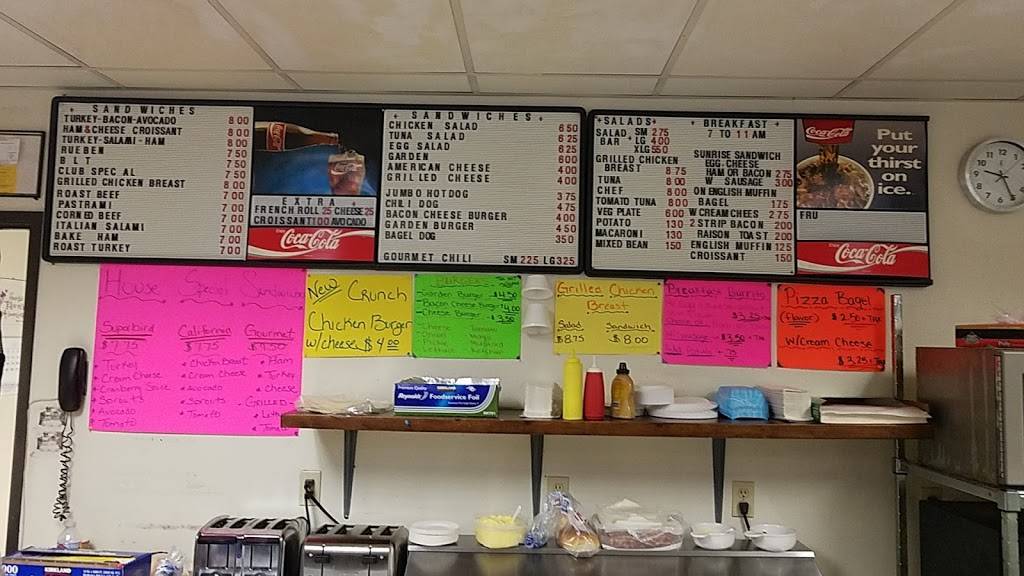 SANDWICHES
TURKEY-BACON-AVOCADO 8 00
HAM&CHEESE CROISSANT 8 00
TURKEY-SALAMI-HAM 8 00
RUEBEN 7 50
B L T 7 50
CLUB SPECAL 7 50
GRILLED CHICKEN BREAST 8 00
ROAST BEEF 7 00
PASTRAMI 7 00
CORNED BEEF 7 00
ITALIAN SALAMI 7 00
BAKE HAM 7 00
ROAST TURKEY 7 00
EXTRA
FRENCH ROLL 25 CHEESE 25
CROISSANT 100 AVOCADO
Coca-Cola
SANDWICHES
CHICKEN SALAD 6 50
TUNA SALAD 6 25
EGG SALAD 6 25
GARDEN 6 00
AMERICAN CHEESE 4 00
GRILLED CHEESE 4 00
JUMBO HOTDOG 3 75
CHILI DOG 4 75
BACON CHEESE BURGER 4 00
GARDEN BURGER 4 50
BAGEL DOG 3 50
GOURMET CHILI SM 225 LG 325
SALADS
SALAD SM 275
BAR LG 400
XLG 550
GRILLED CHICKEN
BREAST 8 75
TUNA 8 00
CHEF 8 00
TOMATO TUNA 8 00
VEG PLATE 600
POTATO 130
MACARONI 130
MIXED BEAN 150
BREAKFAST
7 TO 11 AM
SUNRISE SANDWICH
EGG-CHEESE
HAM OR BACON 275
W SAUSAGE 300
ON ENGLISH MUFFIN
BAGEL 175
W CREAM CHEES 275
2 STRIP BACON 200
RAISON TOAST 200
ENGLISH MUFFIN 125
CROISSANT 150
Coca-Cola
Put
your
thirst
on
ice.
FRU
Coca-Cola
House Special Sandwiches
Superbird
$7.75
Turkey
Cream Cheese
Cranberry Sauce
Sprouts
Avocado
Tomato
California
$7.75
Chicken Breast
Cream Cheese
Avocado
Sprouts
Tomato
Gourmet
$7.50
Ham
Turkey
Cheese
GRILLED
New Crunch
Chicken Burger
w/cheese $4.00
Burgers
Garden Burger $4.50
Bacon Cheese Burger $4.00
Cheese Burger $3.50
Grilled Chicken
Breast
Salad
$8.75
Sandwich
$8.00
Breakfast burrito
Pizza Bagel
(flavor) $2.50 + TAX
W/Cream Cheese
$3.25 + TAX
Reynolds Foodservice Foil
KIRKLAND